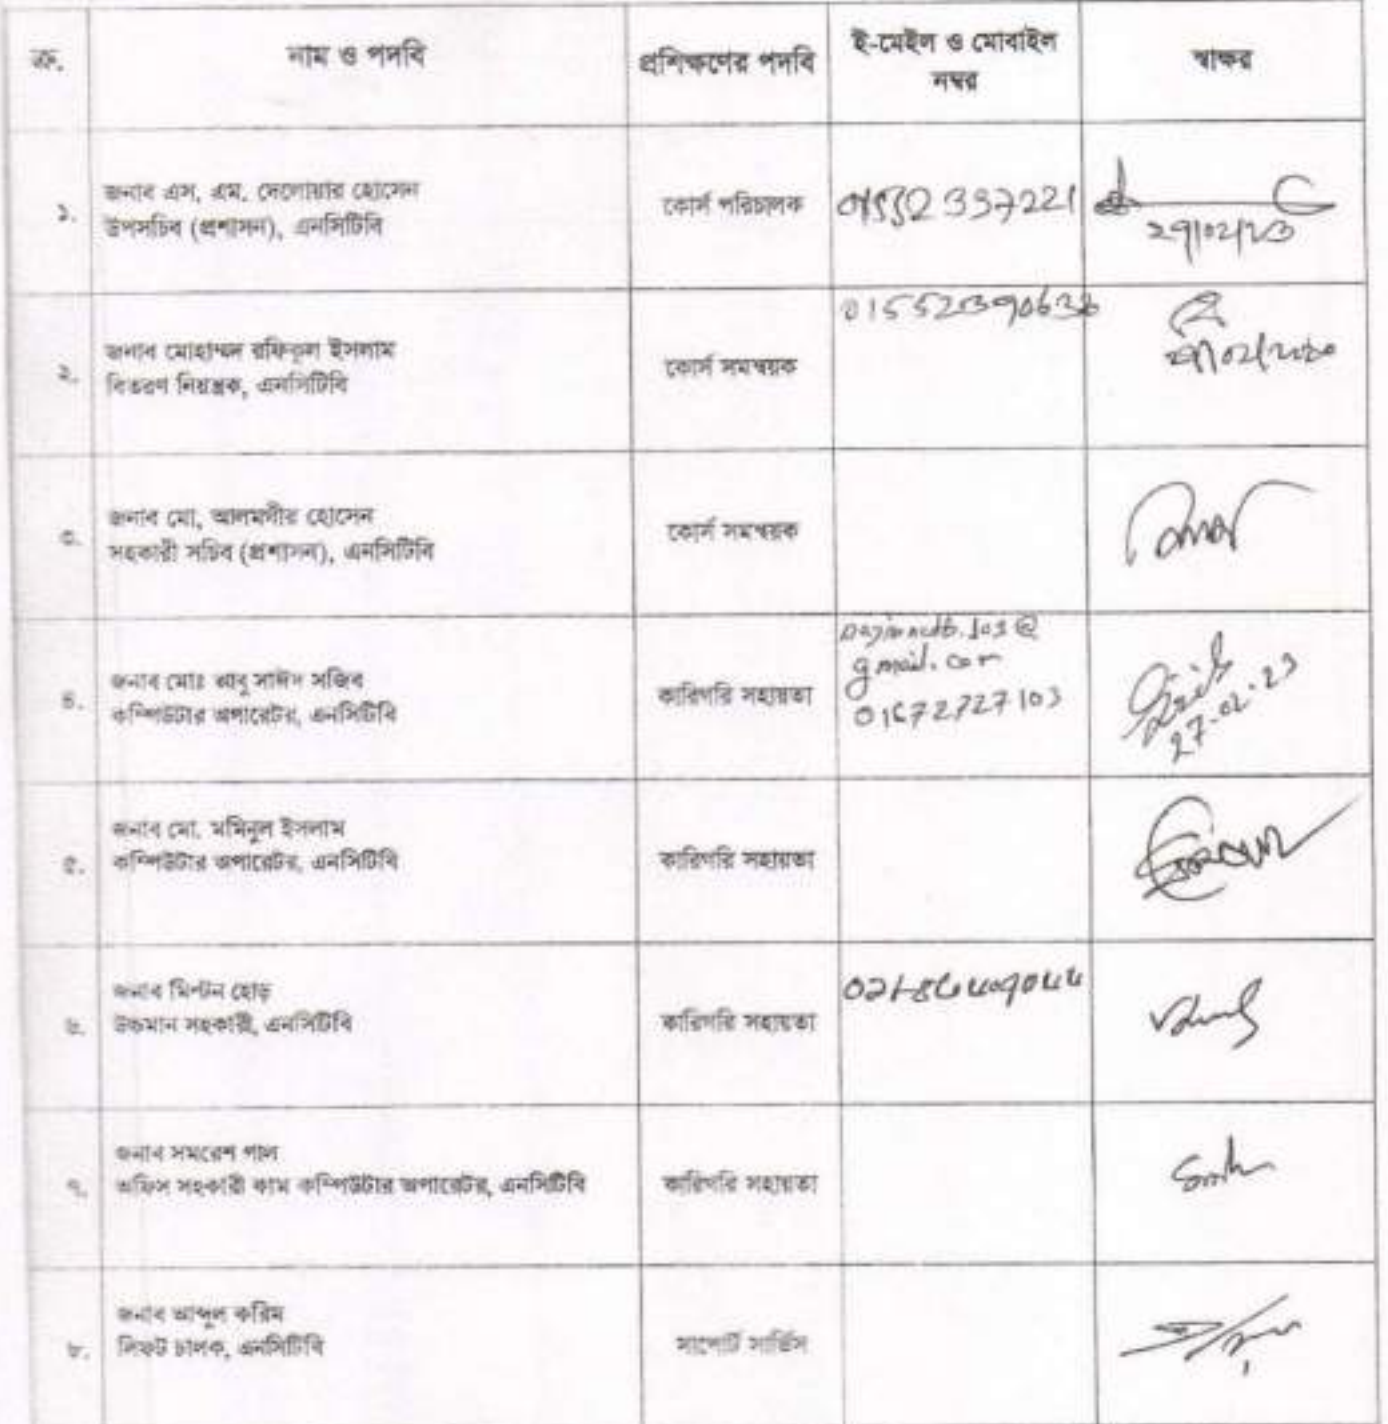 ক্র.
নাম ও পদবি
প্রশিক্ষণের পদবি
ই-মেইল ও মোবাইল
নম্বর
স্বাক্ষর
১.
জনাব এস, এম, দেলোয়ার হোসেন
উপসচিব (প্রশাসন), এনসিটিবি
কোর্স পরিচালক
01552337221
২৭/০২/২৩
২.
জনাব মোহাম্মদ রফিকুল ইসলাম
বিতরণ নিয়ন্ত্রক, এনসিটিবি
কোর্স সমন্বয়ক
৩.
জনাব মো, আলমগীর হোসেন
সহকারী সচিব (প্রশাসন), এনসিটিবি
কোর্স সমন্বয়ক
৪.
জনাব মোঃ আবু সাঈদ সজিব
কম্পিউটার অপারেটর, এনসিটিবি
কারিগরি সহায়তা
gmail.com
01672727103
27.02.23
৫.
জনাব মো. মমিনুল ইসলাম
কম্পিউটার অপারেটর, এনসিটিবি
কারিগরি সহায়তা
৬.
জনাব মিল্টন হোড়
উচ্চমান সহকারী, এনসিটিবি
কারিগরি সহায়তা
৭.
জনাব সমরেশ পাল
অফিস সহকারী কাম কম্পিউটার অপারেটর, এনসিটিবি
কারিগরি সহায়তা
৮.
জনাব আব্দুল করিম
লিফট চালক, এনসিটিবি
সাপোর্ট সার্ভিস